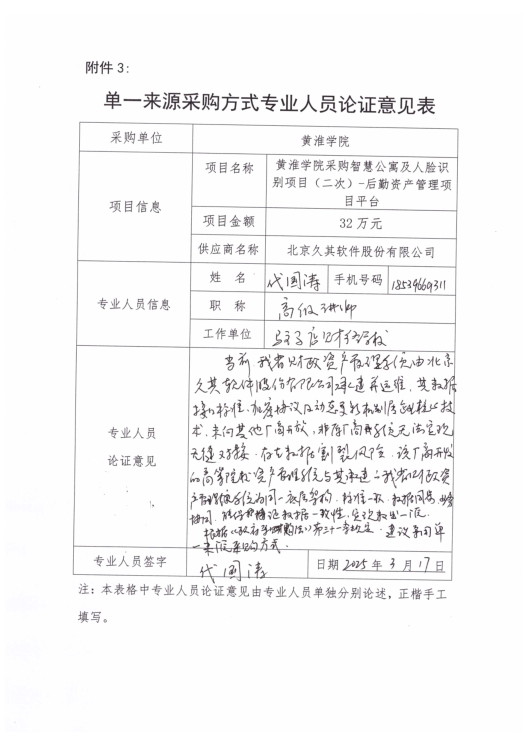 附件 3：
单一来源采购方式专业人员论证意见表
采购单位 黄淮学院
项目信息
项目名称 黄淮学院采购智慧公寓及人脸识
别项目（二次）-后勤资产管理项
目平台
项目金额 32 万元
供应商名称 北京久其软件股份有限公司
专业人员信息
姓 名 代国涛 手机号码
职 称 高级讲师
工作单位 驻马店财经学校
专业人员
论证意见
当前我省财政资产管理系统由北京
久其软件股份有限公司承建并运维，其数据
接口标准、加密协议及动态更新机制属企业核心技
术，未向其他厂商开放，非原厂商系统无法实现
无缝对接，存在数据割裂风险，该厂商开发
的高等院校资产管理系统与其承建的我省财政资
产管理系统为同一底层架构，标准一致、数据同步、业务
协同，保证数据一致性，实现数出一源。
根据《政府采购法》第三十一条规定，建议采用单
一来源采购方式。
专业人员签字 代国涛 日期 2025 年 3 月 17 日
注：本表格中专业人员论证意见由专业人员单独分别论述，正楷手工
填写。